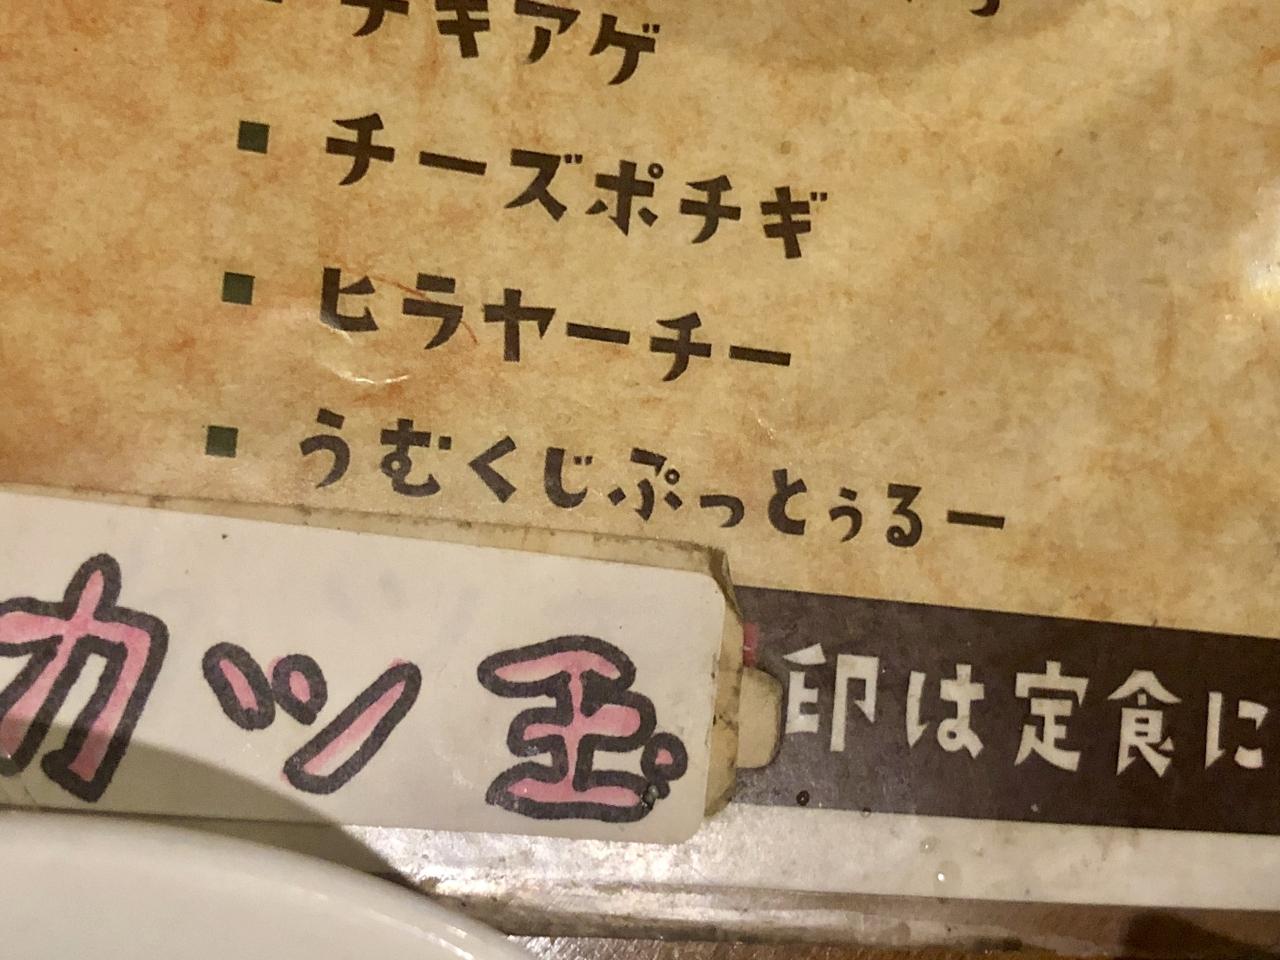 チキアゲ
チーズポチギ
ヒラヤーチー
うむくじぷっとぅるー
カツ玉
印は定食に